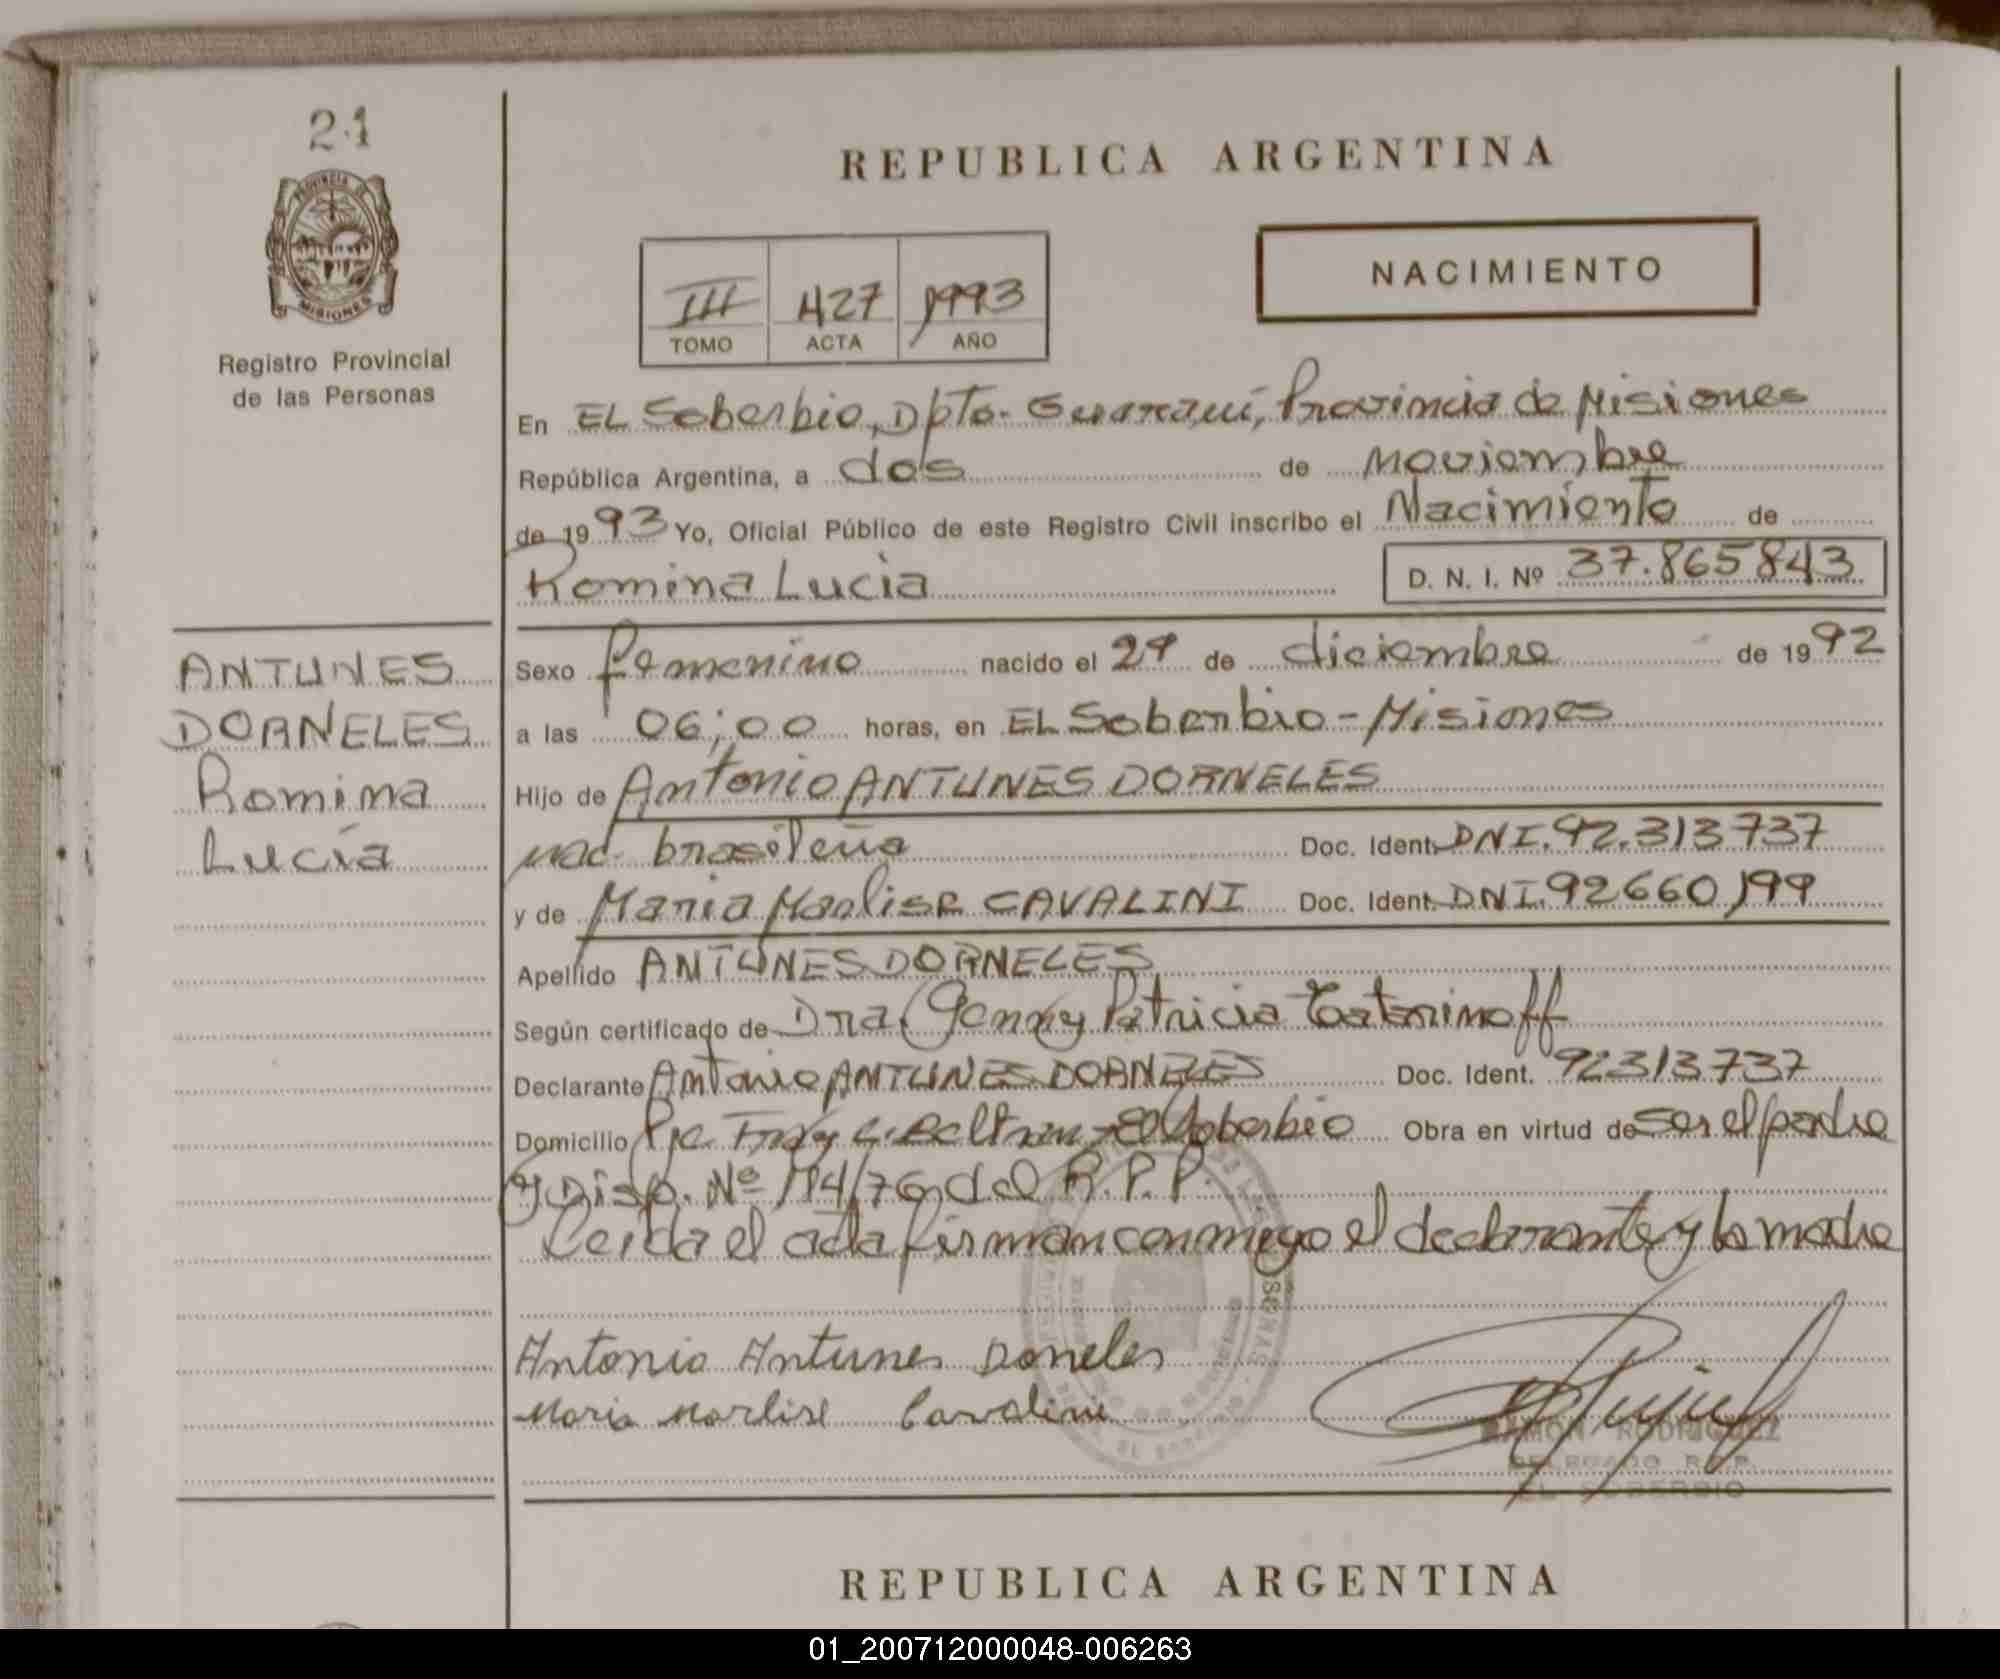 21
PROVINCIA DE
MISIONES
Registro Provincial
de las Personas
REPUBLICA ARGENTINA
III 427 1993
TOMO ACTA AÑO
NACIMIENTO
En EL Soberbio, Dpto. Guaraní, Provincia de Misiones
República Argentina, a dos de noviembre
de 1993 Yo, Oficial Público de este Registro Civil inscribo el Nacimiento de
Romina Lucia D. N. I. Nº 37.865843
ANTUNES
DORNELES
Romina
Lucía
Sexo femenino nacido el 29 de diciembre de 1992
a las 06;00 horas, en EL Soberbio - Misiones
Hijo de Antonio ANTUNES DORNELES
nac. brasileña Doc. Ident. DNI. 92.313737
y de Maria Marlise CAVALINI Doc. Ident. DNI. 92660199
Apellido ANTUNES DORNELES
Según certificado de Dra. Genny Patricia
Declarante Antonio ANTUNES DORNELES Doc. Ident. 92313737
Domicilio Pje. Fray L. Beltran - El Soberbio Obra en virtud de ser el padre
y Disp. Nº 114/76 del R.P.P.
Leida el acta firman conmigo el declarante y la madre
Antonio Antunes Dorneles
Maria Marlise Cavalini
RAMON RODRIGUEZ
DELEGADO R.P.P.
EL SOBERBIO
REPUBLICA ARGENTINA
01_200712000048-006263